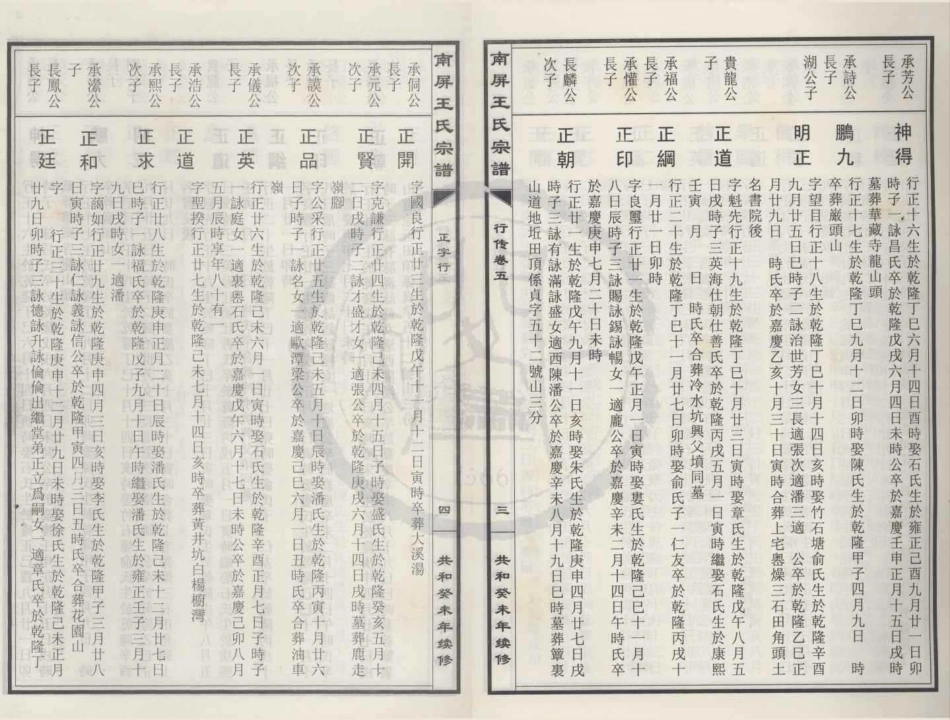 承芳公
長子
神得
行正十六生於乾隆丁巳六月十四日酉時娶石氏生於雍正己酉九月廿一日卯
時子一詠昌氏卒於乾隆戊戌六月四日未時公卒於嘉慶壬申正月十五日戌時
墓葬華藏寺龍山頭
承詩公
長子
鵬九
行正十七生於乾隆丁巳九月十二日卯時娶陳氏生於乾隆甲子四月九日 時
卒葬巖頭山
湖公子
明正
字望目行正十八生於乾隆丁巳十月十四日亥時娶竹石塘俞氏生於乾隆辛酉
九月廿五日巳時子二詠治世芳女三長適張次適潘三適 公卒於乾隆乙巳正
月廿九日 時氏卒於嘉慶乙亥十月三十日寅時合葬上宅嶴燥三石田角頭土
名書院後
貴龍公
子
正道
字魁先行正十九生於乾隆丁巳十月廿三日寅時娶章氏生於乾隆戊午八月五
日戌時子三英海仕朝仕善氏卒於乾隆丙戌五月一日寅時繼娶石氏生於康熙
壬寅 月 日 時氏卒合葬冷水坑興父墳同墓
承福公
長子
正綱
行正二十生於乾隆丁巳十一月廿七日卯時娶俞氏子一仁友卒於乾隆丙戌十
一月廿一日卯時
承懂公
長子
正印
字良璽行正廿一生於乾隆戊午正月一日寅時娶婁氏生於乾隆己巳十一月十
八日辰時子三詠賜詠錫詠暢女一適龐公卒於嘉慶辛未二月十四日午時氏卒
於嘉慶庚申七月二十日未時
長麟公
次子
正朝
行正廿一生於乾隆戊午九月十一日亥時娶朱氏生於乾隆庚申四月廿七日戌
時子三詠有詠滿詠盛女適西陳潘公卒於嘉慶辛未八月十九日巳時墓葬簟裏
山道地坵田頂係貞字五十二號山三分
南屏王氏宗譜
行傳卷五
三
共和癸未年續修
南屏王氏宗譜
正字行
四
共和癸未年續修
承侗公
長子
正開
字國良行正廿三生於乾隆戊午十一月十二日寅時卒葬大溪湯
承元公
次子
正賢
字克謙行正廿四生於乾隆己未四月十五日子時娶盛氏生於乾隆癸亥五月十
二日戌時子二詠才盛才女一適張公卒於乾隆庚戌六月十四日戌時墓葬鹿走
嶺腳
承謨公
次子
正品
字公采行正廿五生於乾隆己未五月十日辰時娶潘氏生於乾隆丙寅十月廿六
日子時子一詠名女一適歐潭梁公卒於嘉慶己巳六月一日丑時氏卒合葬油車
嶺
承儀公
長子
正英
行正廿六生於乾隆己未六月一日寅時娶石氏生於乾隆辛酉正月七日子時子
一詠庭女一適裏嶴石氏卒於嘉慶戊午六月十七日未時公卒於嘉慶己卯八月
五月辰時享年八十有一
承浩公
長子
正道
字聖揆行正廿七生於乾隆己未七月十四日亥時卒葬黃井坑白楊樹灣
承熙公
次子
正求
行正廿八生於乾隆庚申正月二十日辰時娶潘氏生於乾隆己未十二月廿七日
巳時子一詠福氏卒於乾隆戊子九月十日午時繼娶潘氏生於雍正壬子三月十
九日戌時女一適潘
承瀠公
子
正和
字藹如行正廿九生於乾隆庚申四月三日亥時娶李氏生於乾隆甲子三月廿八
日寅時子三詠仁詠義詠信公卒於乾隆甲寅四月三日丑時氏卒合葬花園山
長鳳公
長子
正廷
字 行正三十生於乾隆庚申十二月廿九日未時娶徐氏生於乾隆己未正月
廿九日卯時子三詠德詠升詠倫倫出繼堂弟正立爲嗣女一適章氏卒於乾隆丁